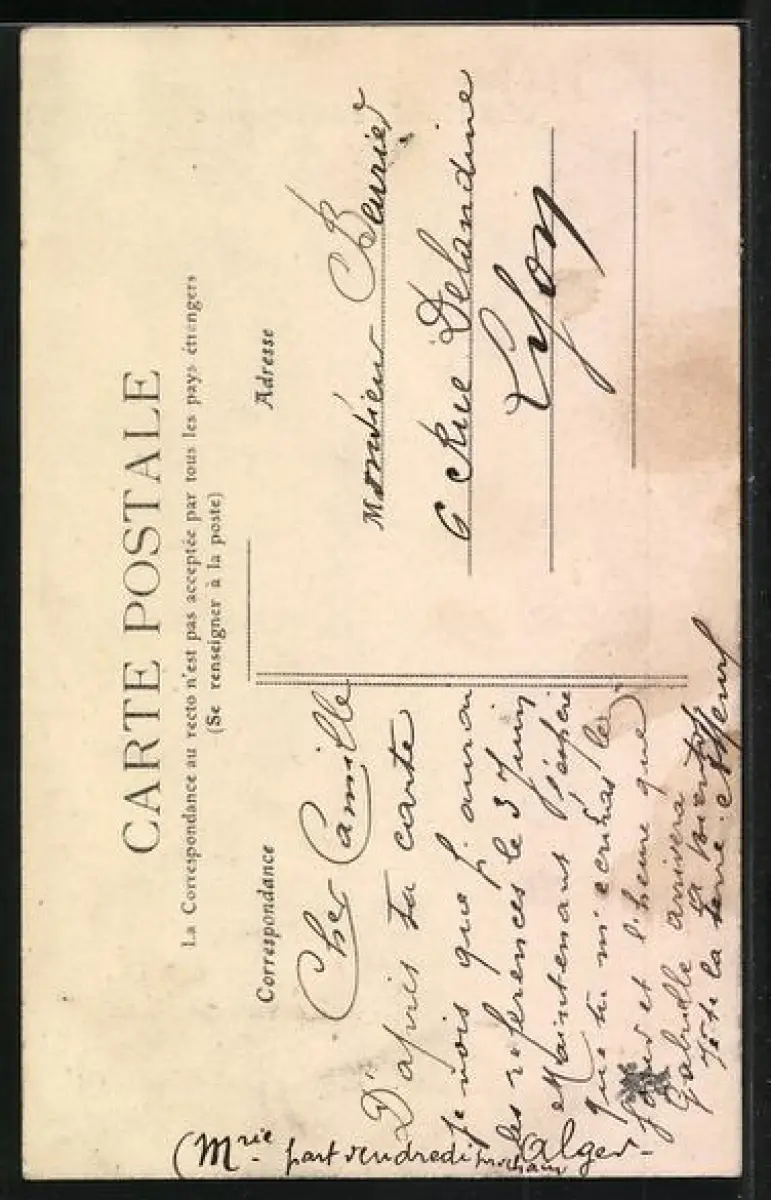 CARTE POSTALE
La Correspondance au recto n'est pas acceptée par tous les pays étrangers
(Se renseigner à la poste)
Correspondance
Adresse
Cher Camille
D'après ta carte
je vois que j'aurai
les références le 3 Juin
Maintenant j'espère
que tu m'écriras le
jour et l'heure que
Gabrielle arrivera
A bientôt
la terre
(Mrie part vendredi prochain Alger
Monsieur Beurier
6 Rue Delandine
Lyon